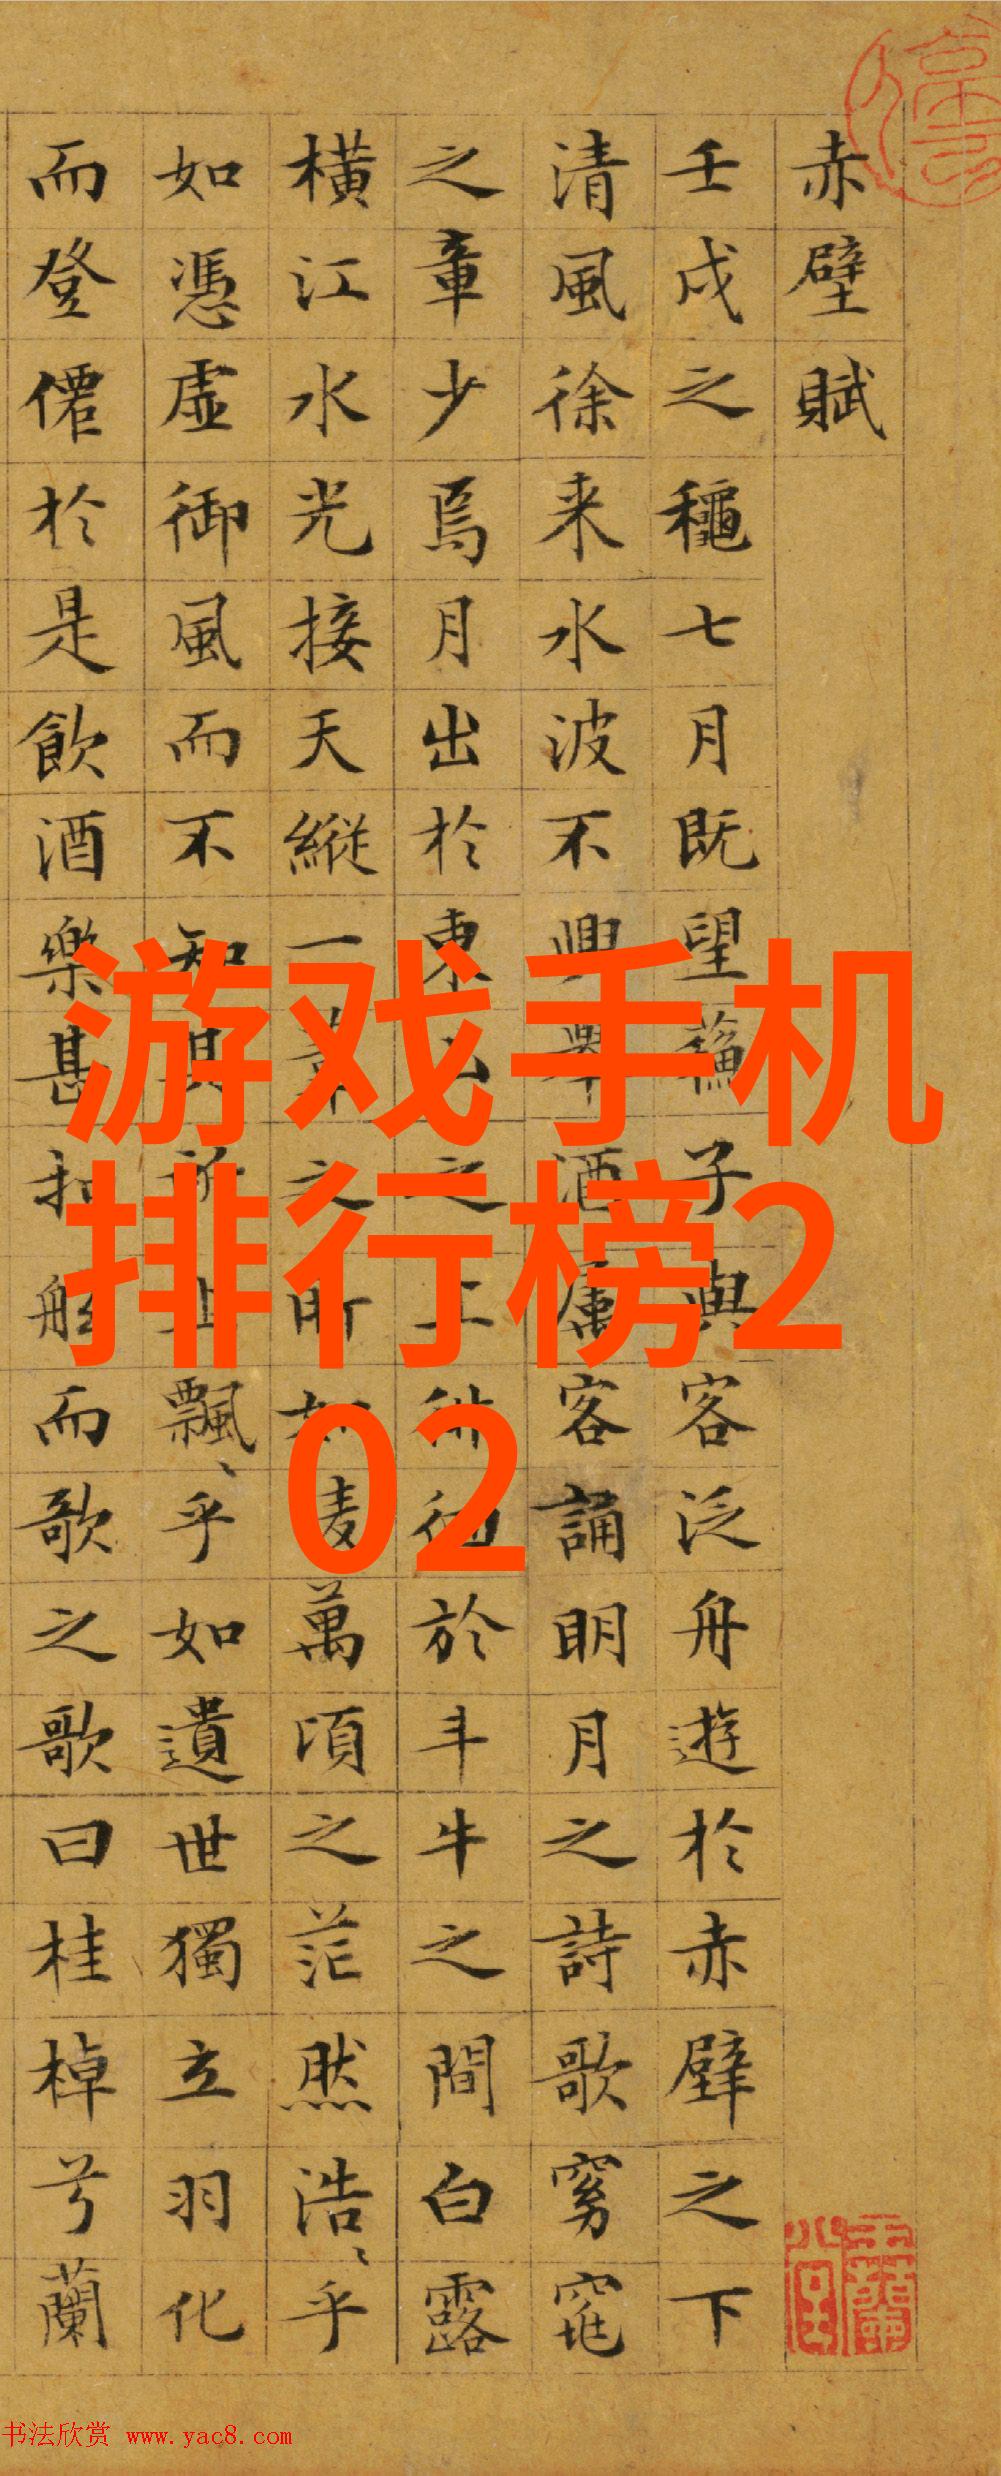 赤壁賦
壬戌之穐七月既望蘓子與客泛舟遊於赤壁之下
清風徐来水波不興舉酒属客誦明月之詩歌窈窕
之章少焉月出於東山之上徘徊於斗牛之間白露
橫江水光接天縱一葦之所如凌萬頃之茫然浩〻乎
如憑虛御風而不知其所止飄〻乎如遺世獨立羽化
而登僊於是飲酒樂甚扣舷而歌之歌曰桂棹兮蘭
游戏手机
排行榜2
02
书法欣赏 www.yac8.com